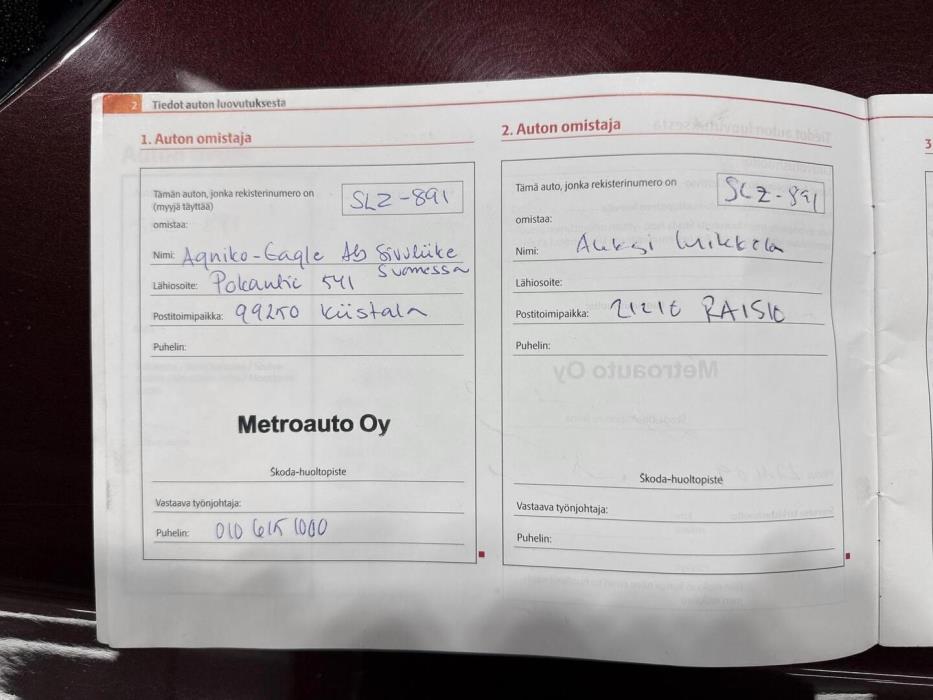 2 Tiedot auton luovutuksesta
1. Auton omistaja
Tämän auton, jonka rekisterinumero on
(myyjä täyttää)
SLZ-891
omistaa:
Nimi: Agniko-Eagle Ab Sivuliike
Suomessa
Lähiosoite: Pokantie 541
Postitoimipaikka: 99250 Kiistala
Puhelin:
Metroauto Oy
Škoda-huoltopiste
Vastaava työnjohtaja:
Puhelin: 010 615 1000
2. Auton omistaja
Tämä auto, jonka rekisterinumero on
SLZ-891
omistaa:
Nimi: Mikkola
Lähiosoite:
Postitoimipaikka: 21210 RAISIO
Puhelin:
Škoda-huoltopiste
Vastaava työnjohtaja:
Puhelin:
3